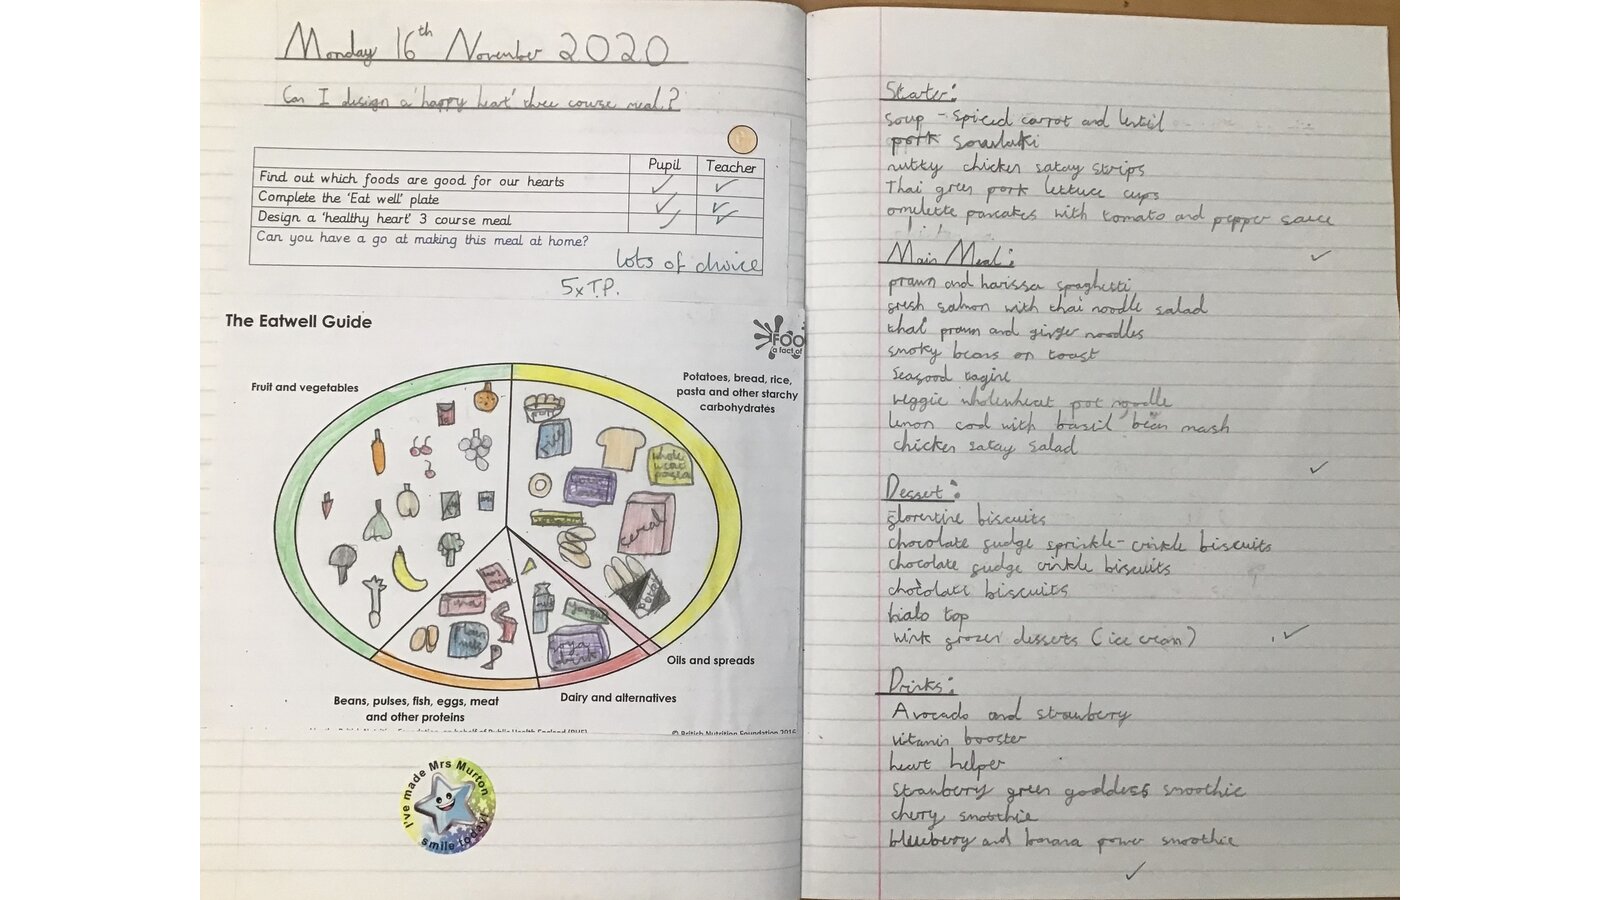 Monday 16th November 2020
Can I design a 'happy heart' three course meal?
Pupil Teacher
Find out which foods are good for our hearts
Complete the 'Eat well' plate
Design a 'healthy heart' 3 course meal
Can you have a go at making this meal at home?
lots of choice
5xT.P.
The Eatwell Guide
FOO
a fact of
Fruit and vegetables
Potatoes, bread, rice,
pasta and other starchy
carbohydrates
rice
whole
cereal
Potato
Tuna
Plain
nuts
Yogurt
Soya
drink
Oils and spreads
Dairy and alternatives
Beans, pulses, fish, eggs, meat
and other proteins
© British Nutrition Foundation 2016
I've made Mrs Murton
smile today!
Starter:
soup - spiced carrot and lentil
pork souvlaki
nutty chicken satay strips
Thai green pork lettuce cups
omelette pancakes with tomato and pepper sauce
Main Meal:
prawn and harissa spaghetti
fresh salmon with thai noodle salad
thai prawn and ginger noodles
smoky beans on toast
Seafood tagine
veggie wholewheat pot noodle
lemon cod with basil bean mash
chicken satay salad
Dessert:
florentine biscuits
chocolate fudge sprinkle-crinkle biscuits
chocolate fudge crinkle biscuits
chocolate biscuits
halo top
wink frozen desserts (ice cream)
Drinks:
Avocado and strawberry
vitamin booster
heart helper
Strawberry green goddess smoothie
chery smoothie
blueberry and banana power smoothie